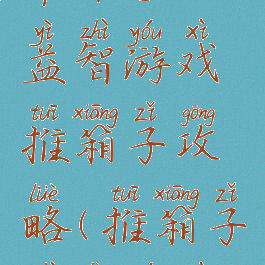 yì zhì yóu xì
益智游戏
tuī xiāng zǐ gōng
推箱子攻
lüè tuī xiāng zǐ
略(推箱子